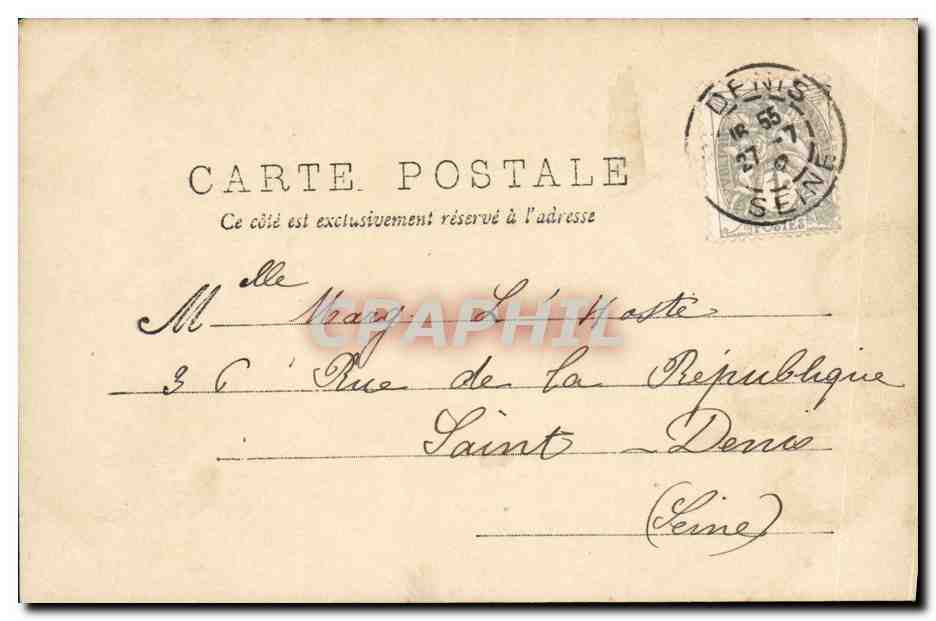 CARTE POSTALE
Ce côté est exclusivement réservé à l'adresse
DENIS
18 55
27 -7
SEINE
POSTES
CPAPHIL
Mlle Mary L'Hoste
36 Rue de la République
Saint-Denis
(Seine)